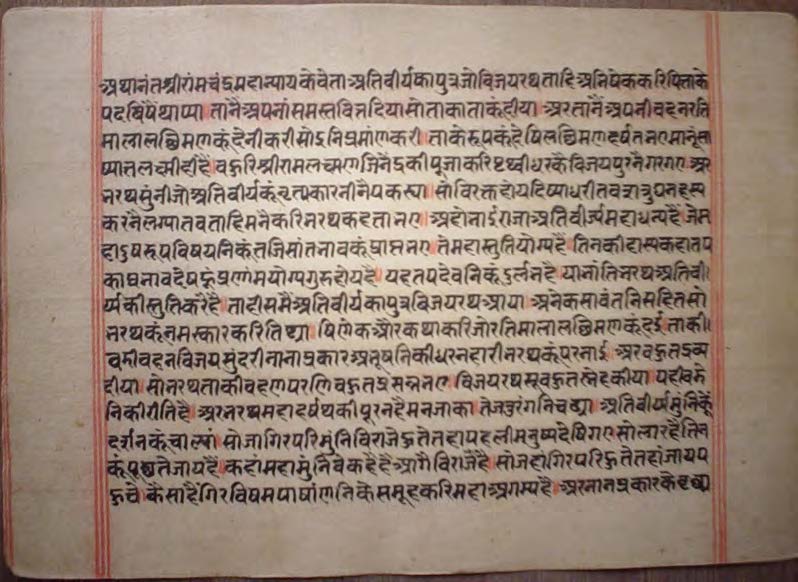 अथानंतश्रीरामचंद्रमहान्यायकेवेता अतिवीर्यकापुत्रजोविजयरथताहिअभिषेककरिपिताके
पदविषैथाप्या तानैअपनांसमस्तवित्तदिषाया सोताकाताकूंदीया अरतानैंअपनीवहनरति
मालालछिमणकूंदेनीकरीसोइनिप्रमांणकरी ताकेरूपकूंदेषिलछिमणहर्षतभएमानूंसा
ष्यातलछ्मीहीहै बहुरिश्रीरामलछ्मणजिनेंद्रकीपूजाकरिपृथ्वीधरकेविजयपुरनैगरगए अर
भरथसुंनीजोअतिवीर्यकूंनृत्यकारनीनैपकड्या सोविरक्तहोयदिष्याधरीतवशत्रुघनहस्य
करनैलग्यातवताहिमनैकरिभरथकहताभए अहोभाईराजाअतिवीर्यमहाधन्यहैं जेम
हादुषरूपविषयनिकूंतजिसांतभावकूंप्राप्तभए तेमहास्तुतियोग्यहैं तिनकीहास्यकहातप
काप्रभावदेषहूरिपुप्रणांमयोग्यगुरुहोयहै यहतपदेवनिकूंदुर्लभहै याभांतिभरथअतिवी
र्यकीस्तुतिकरैहै ताहीसमैअतिवीर्यकापुत्रविजयरथआया अनेकसावंतनिसहितसो
भरथकूंनमस्कारकरितिष्ठा षिणेकऔरकथाकरिजोरतिमालालछिमणकूंदई ताकी
वमीवहनविजयसुंदरीनानाप्रकारआभूषनिकीधरनहारीभरथकूंपरनाई अरवहुतद्रव्य
दीया सोभरथताकीवहणपरणिवहुतप्रसन्नभए विजयरथसूंवहुतस्नेहकीया यहीवडे
निकीरीतिहै अरभरथमहाहर्षथकीपूरनहैमनजाका तेजतुरंगनिचढ्या अतिवीर्यमुंनिकैं
दर्शनकूंचाल्या सोजागिरपरिमुंनिविराजेहुतेतहापहलीमनुष्यदेषिगए सोलारहैतिन
कूंपूछतेजायहैं कहांमहामुंनिवेकहैहैंआगैविराजैहैं सोजहागिरपरिहुतेतहांजायप
हुचे कैसाहैगिरविषमपाषांणनिकेसमूहकरिमहाअगम्यहै अरनानाप्रकारकेवृष्य